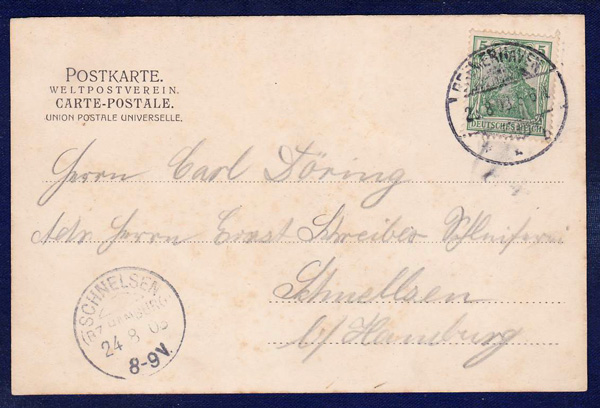 POSTKARTE.
WELTPOSTVEREIN.
CARTE-POSTALE.
UNION POSTALE UNIVERSELLE.
5 5
BREMERHAVEN
DEUTSCHES REICH
Herrn Carl Döring
Adr. Herrn Ernst Schreiber Schleiferei
Schnellsen
b/Hamburg
SCHNELSEN
(BZ HAMBURG)
24 8 03
8-9V.